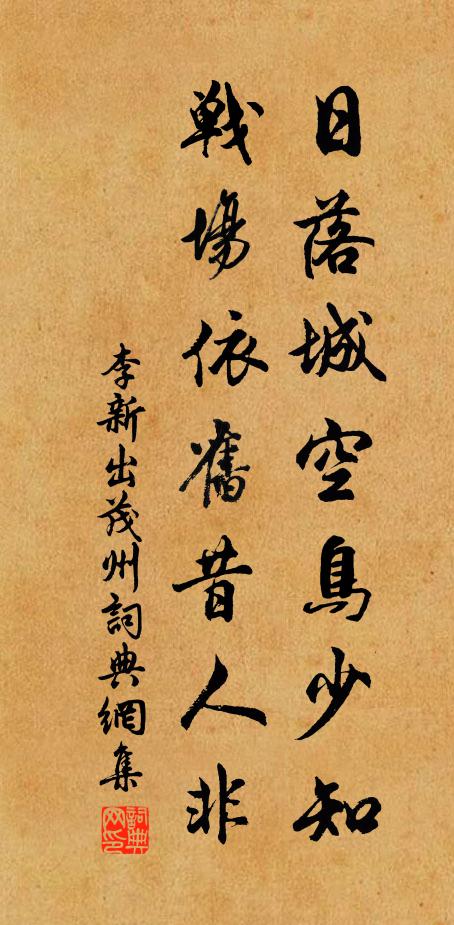 日落城空鳥少知
戰場依舊昔人非
李新出茂州詞典網集
詞典网印